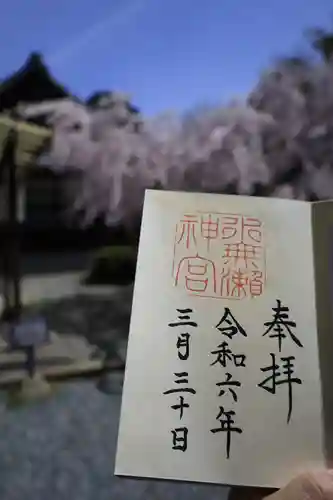 奉拝
令和六年
三月三十日
水無瀬
神宮